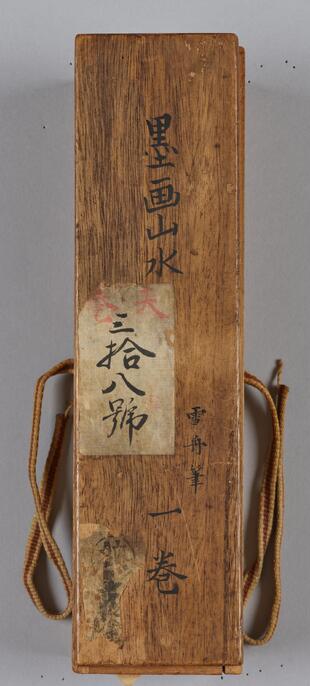 墨画山水
一巻
雪舟筆
天
三拾八號